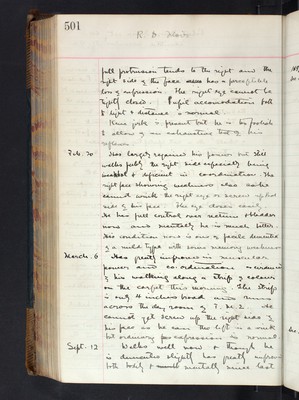 501
full protrusion tends to the right and the
right side of the face has a perceptible
loss of expression. The right eye cannot be
tightly closed. Pupil accomodation both
to light & distance is normal.
Knee jerk is present but he is too foolish
to allow of an exhaustive test of his
reflexes
Feb. 20 Has largely regained his power but still
walks feebly the right side especially being
weakest & deficient in coordination. The
right face showing weakness also as he
cannot wink the right eye or screw up that
side of his face. The eye closes easily.
He has full control over rectum & bladder
now and mentally he is much better.
His condition now is one of facile dementia
of a mild type with some memory weakness
March 6 Has greatly improved in muscular
power and co-ordination evidence
of his walking along a strip of colour
on the carpet this morning. The strip
is only 4 inches broad and runs
across the day room of
cannot yet screw up the right side of
his face as he can the left in a wink
but ordinary expression is normal.
Sept. 12 Walks well now & though he
is demented slightly has greatly improved
both bodily & mentally since last